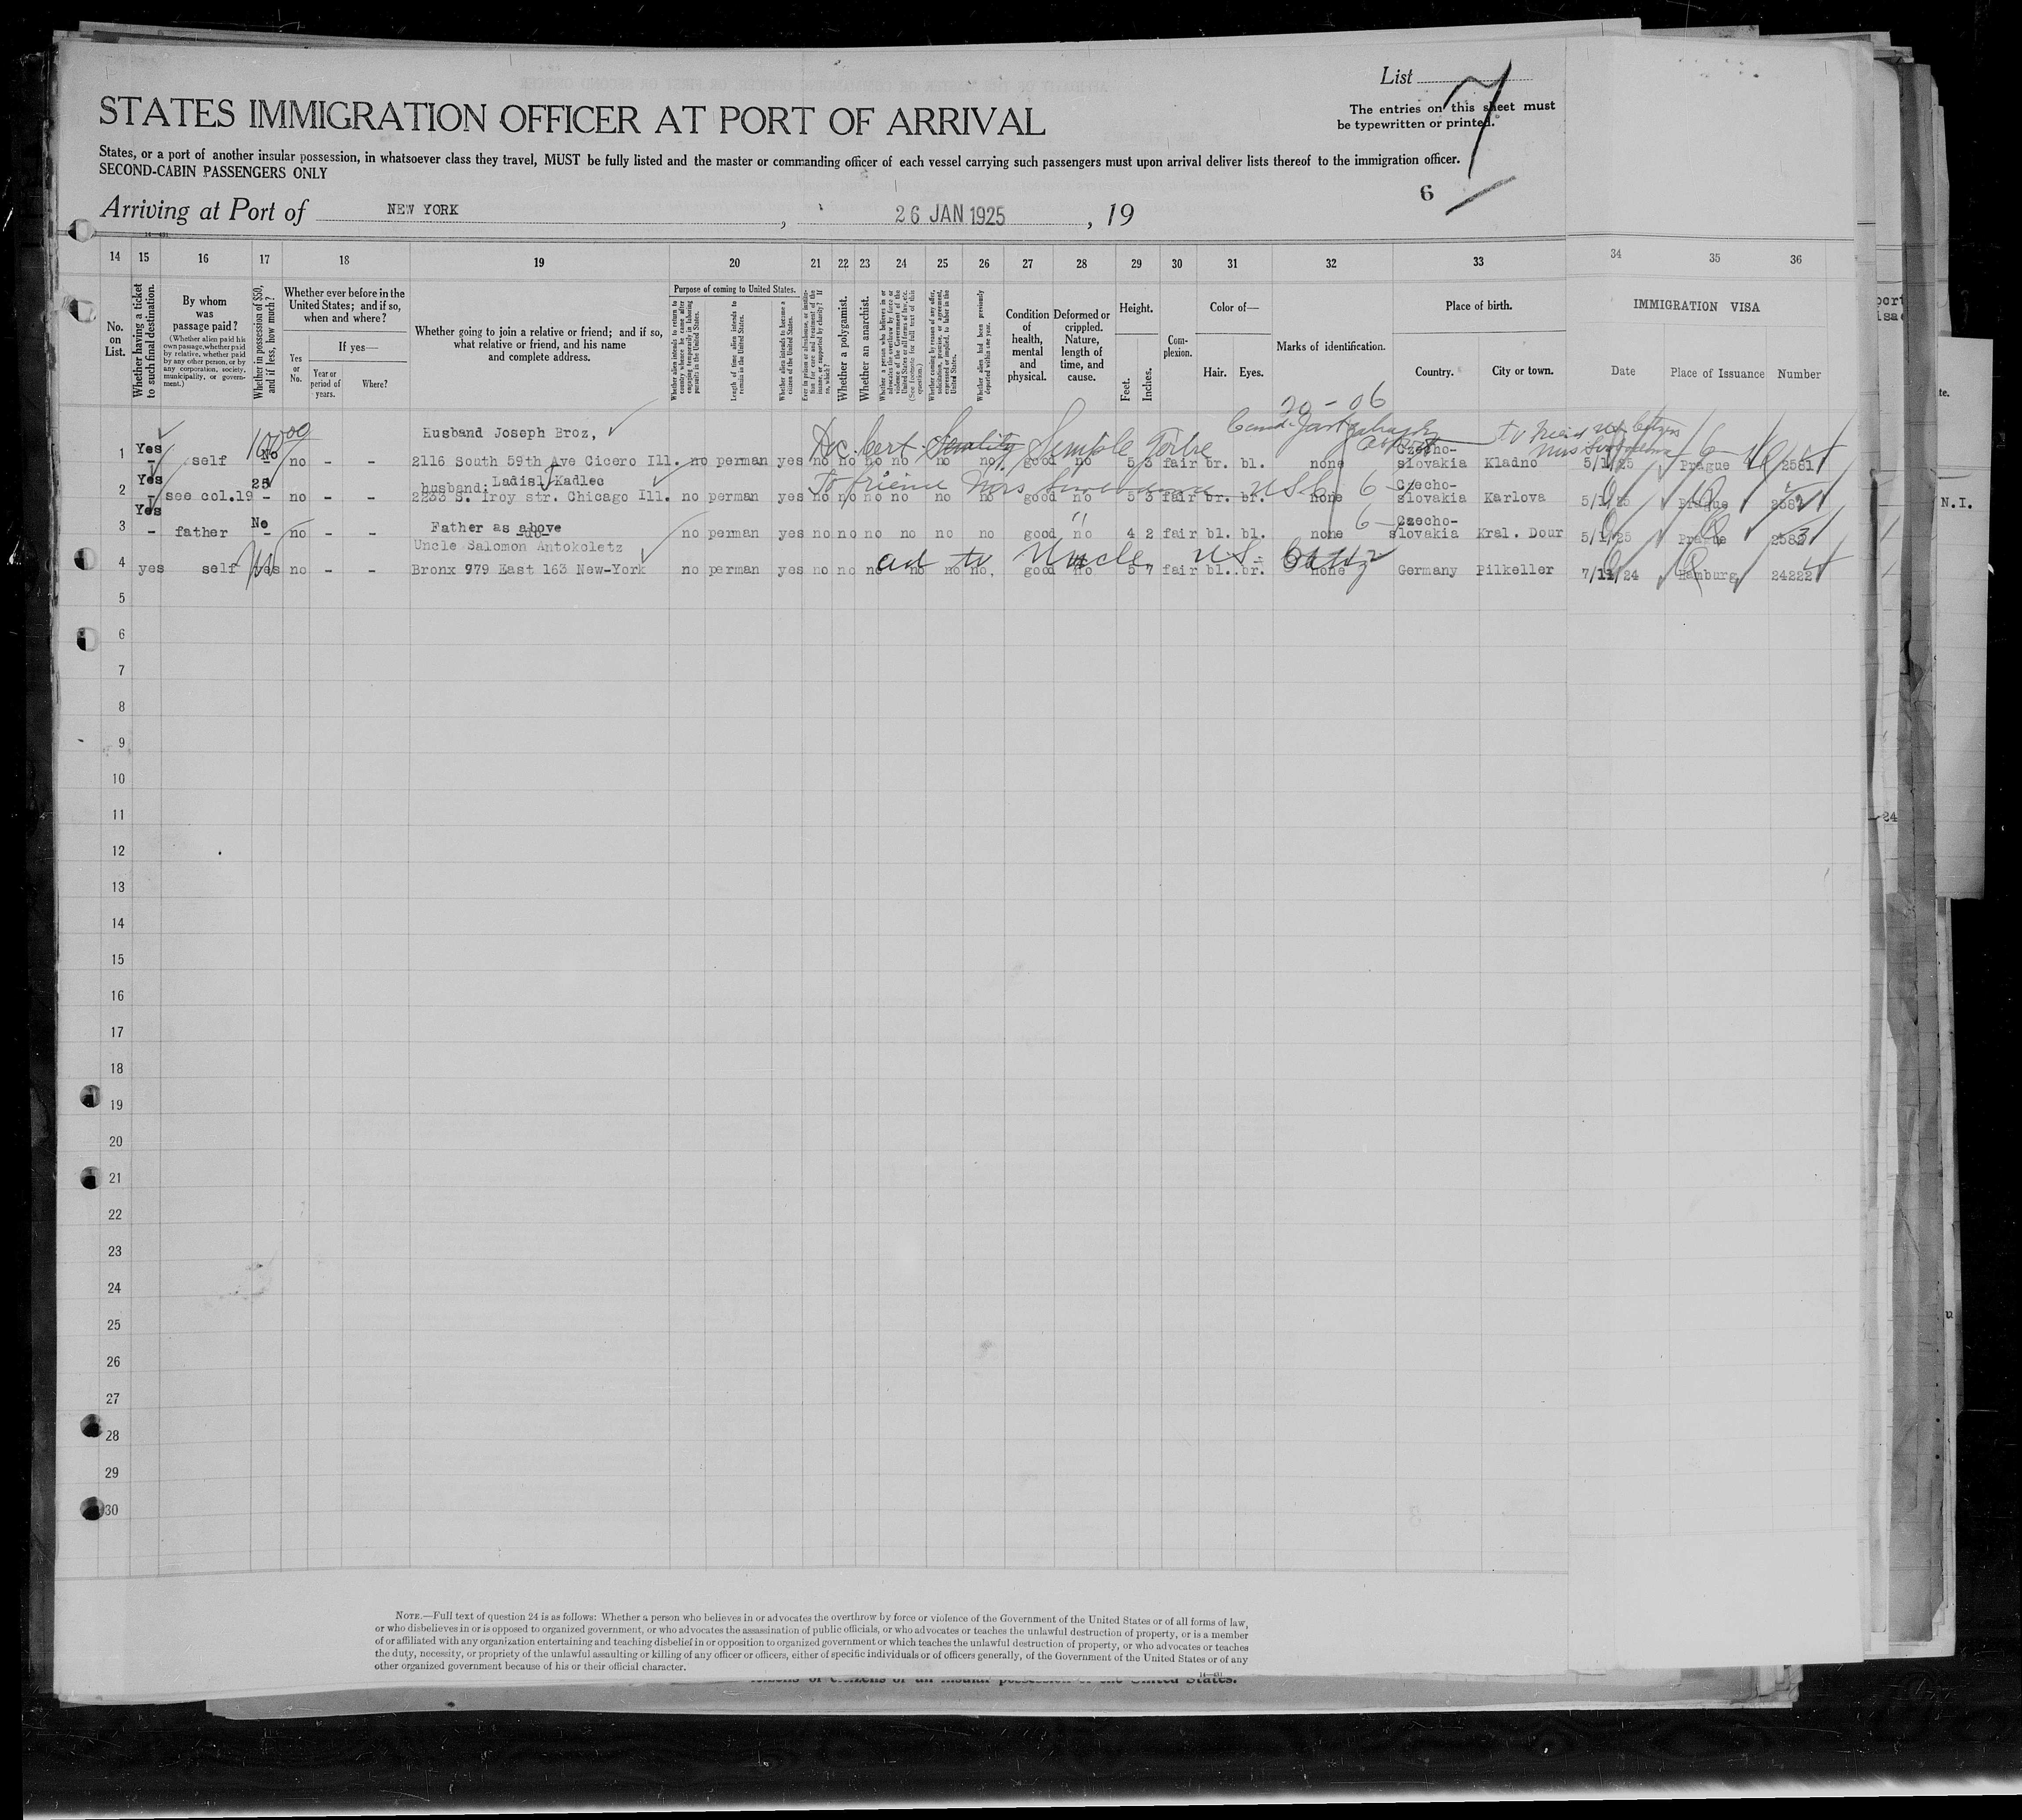 List 7
The entries on this sheet must
be typewritten or printed.
STATES IMMIGRATION OFFICER AT PORT OF ARRIVAL
States, or a port of another insular possession, in whatsoever class they travel, MUST be fully listed and the master or commanding officer of each vessel carrying such passengers must upon arrival deliver lists thereof to the immigration officer.
SECOND-CABIN PASSENGERS ONLY
6
Arriving at Port of NEW YORK, 26 JAN 1925, 19
14 15 16 17 18 19 20 21 22 23 24 25 26 27 28 29 30 31 32 33 34 35 36
No. on List.
Whether having a ticket to such final destination.
By whom was passage paid?
(Whether alien paid his own passage, whether paid by relative, whether paid by any other person, or by any corporation, society, municipality, or government.)
Whether in possession of $50, and if less, how much?
Whether ever before in the United States; and if so, when and where?
Yes or No.
If yes—
Year or period of years.
Where?
Whether going to join a relative or friend; and if so, what relative or friend, and his name and complete address.
Purpose of coming to United States.
Whether alien intends to return to country whence he came after engaging temporarily in laboring pursuits in the United States.
Length of time alien intends to remain in the United States.
Whether alien intends to become a citizen of the United States.
Whether a polygamist.
Whether an anarchist.
Condition of health, mental and physical.
Deformed or crippled. Nature, length of time, and cause.
Height.
Feet.
Inches.
Complexion.
Color of—
Hair. Eyes.
Marks of identification.
Place of birth.
Country. City or town.
IMMIGRATION VISA
Date Place of Issuance Number
20-06
Husband Joseph Broz,
1 Yes - self No no - - 2116 South 59th Ave Cicero Ill. no perman yes no no no no no no good no 5 3 fair br. bl. none Czecho-slovakia Kladno 5/1/25 Prague 2581
husband: Ladisl Kadlec
2 Yes - see col.19 25 - no - - 2233 S. Troy str. Chicago Ill. no perman yes no no no no no no good no 5 3 fair br. br. none Czecho-slovakia Karlova 5/1/25 Prague 2582
To friend Mrs
USC 6
Father as above
3 Yes - father No - no - - -do- no perman yes no no no no no no good no 4 2 fair bl. bl. none Czecho-slovakia Kral. Dour 5/1/25 Prague 2583
Uncle Salomon Antokoletz
4 yes self yes no - - Bronx 979 East 163 New-York no perman yes no no no no no no, good no 5 7 fair bl. br. none Germany Pilkeller 7/11/24 Hamburg 24222
ad to Uncle, US
5
6
7
8
9
10
11
12
13
14
15
16
17
18
19
20
21
22
23
24
25
26
27
28
29
30
NOTE.—Full text of question 24 is as follows: Whether a person who believes in or advocates the overthrow by force or violence of the Government of the United States or of all forms of law,
or who disbelieves in or is opposed to organized government, or who advocates the assassination of public officials, or who advocates or teaches the unlawful destruction of property, or is a member
of or affiliated with any organization entertaining and teaching disbelief in or opposition to organized government or which teaches the unlawful destruction of property, or who advocates or teaches
the duty, necessity, or propriety of the unlawful assaulting or killing of any officer or officers, either of specific individuals or of officers generally, of the Government of the United States or of any
other organized government because of his or their official character.
N.I.
24